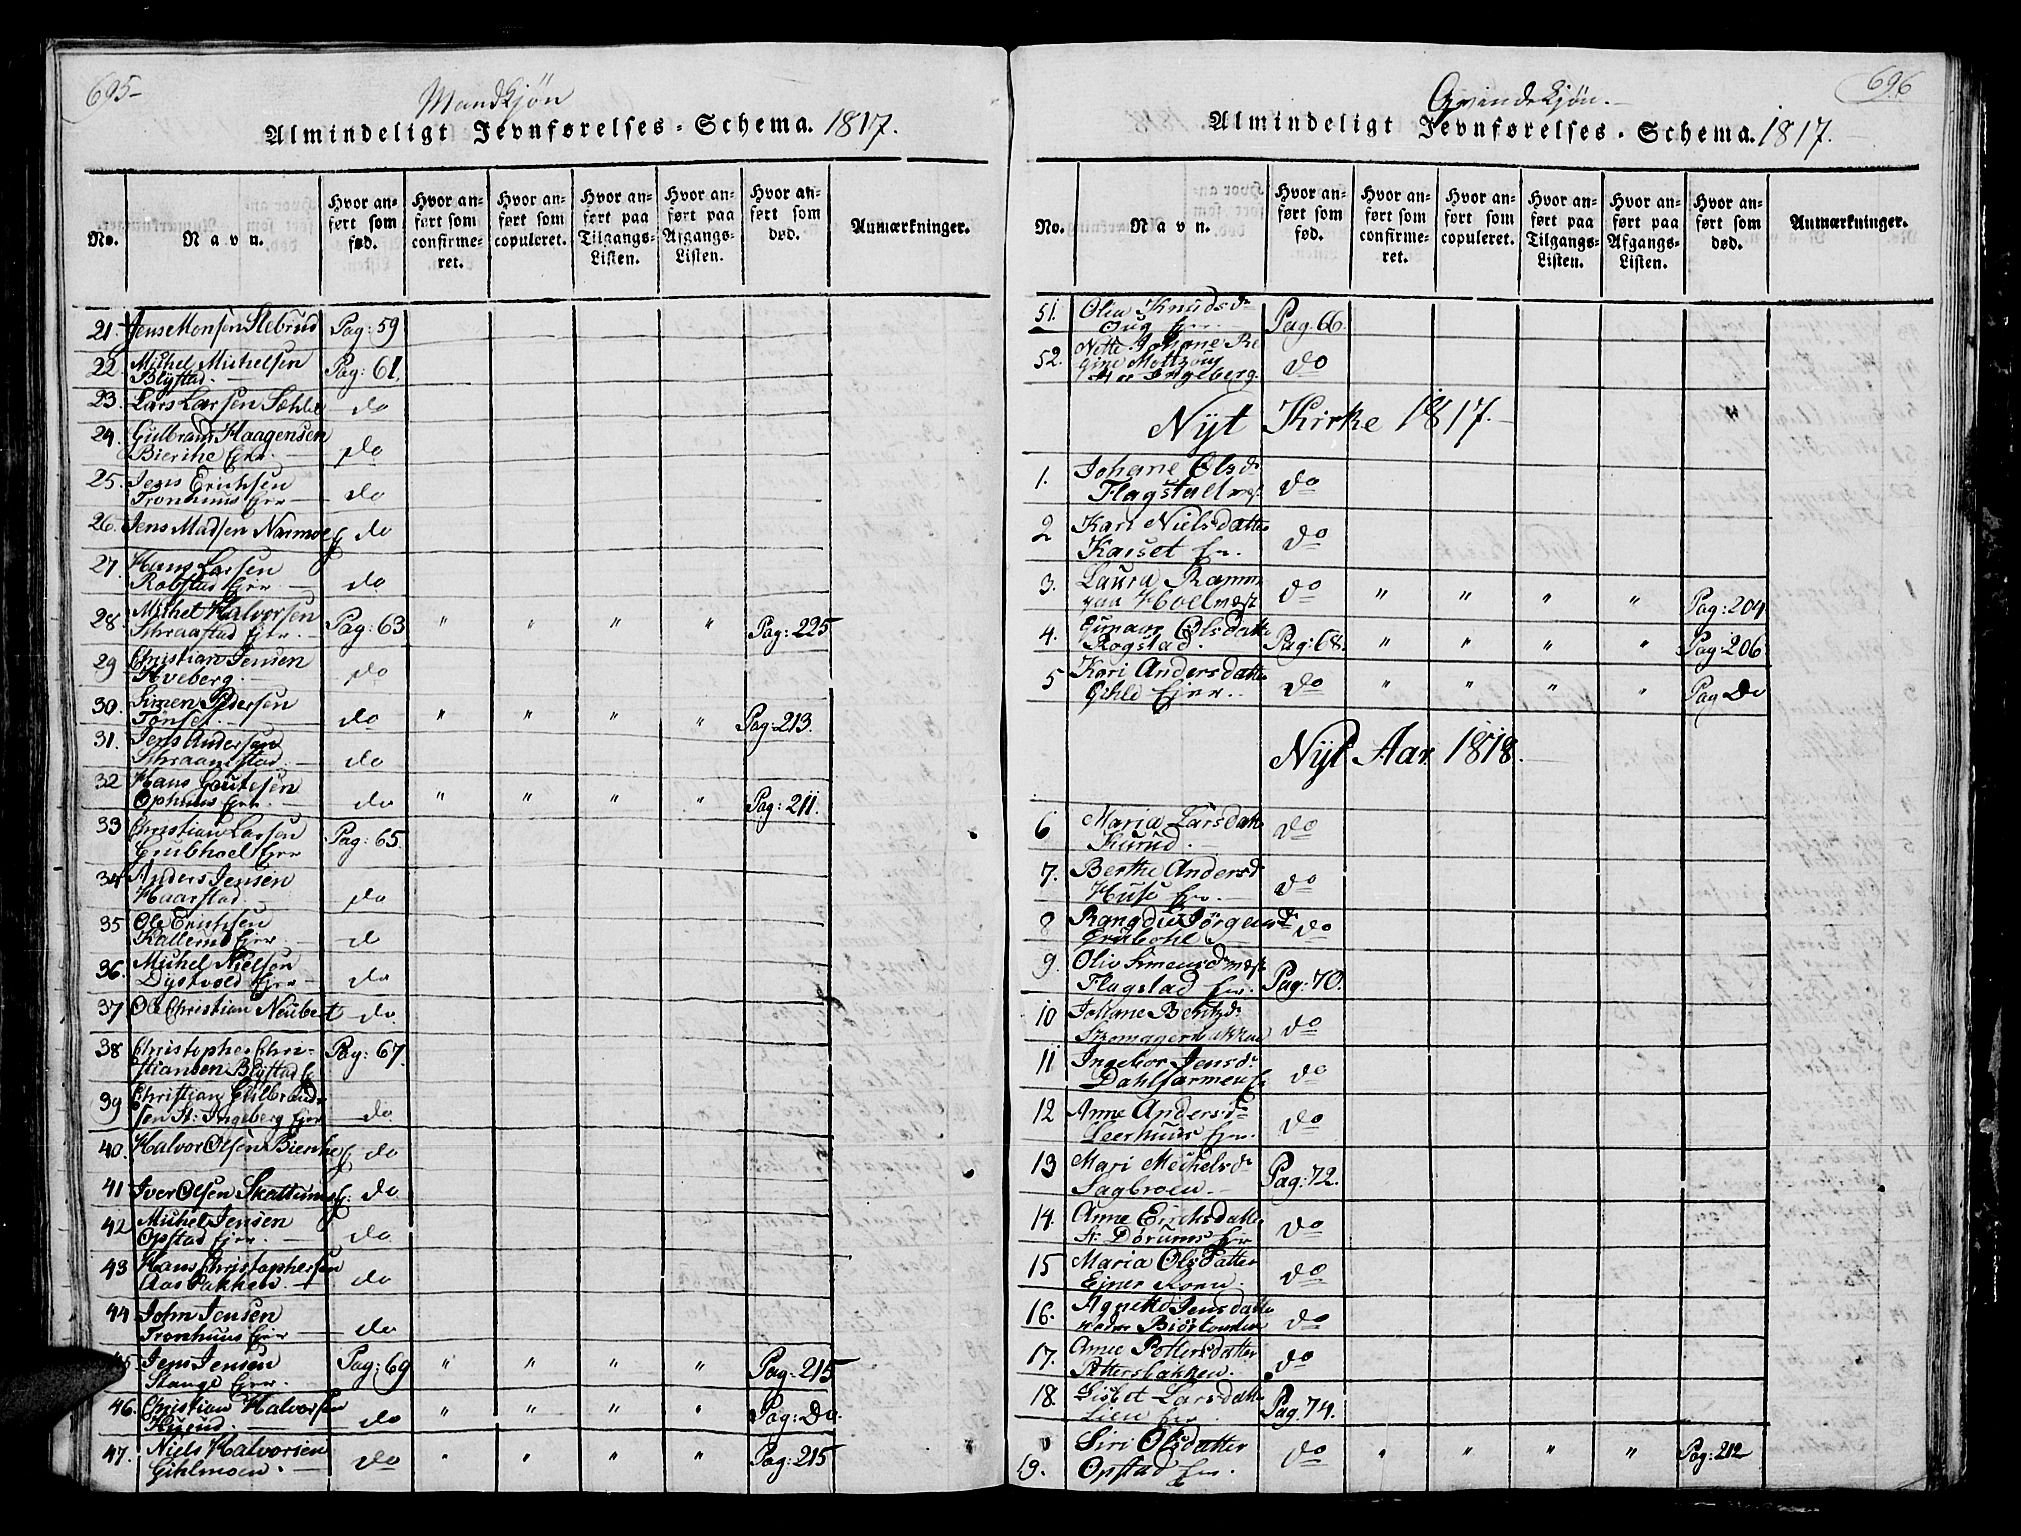 695
Mandkjøn
Almindeligt Jevnførelses-Schema. 1817.
No.
Navn.
Hvor anført som fød.
Hvor anført som confirmeret.
Hvor anført som copuleret.
Hvor anført paa Tilgangs-Listen.
Hvor anført paa Afgangs-Listen.
Hvor anført som død.
Anmærkninger.
21. Jens Monsen Slebrud Pag: 59
22. Michel Michelsen Pag: 61.
Blystad.
23. Lars Larsen Sæhlie do
24. Gulbrand Haagensen
Bierche Ejer. do
25. Jens Erichsen
Tronhuus Ejer do
26. Jens Madsen Narmoe do
27. Hans Larsen
Robstad Ejer do
28. Michel Halvorsen Pag: 63 " " " " Pag: 225
Schraastad Ejer.
29 Christian Jensen
Hveberg. do
30. Simen Pedersen
Tønset. do " " " " Pag: 213.
31. Jens Andersen
Schraamstad do
32 Hans Goutesen
Ophuus Ejer. do " " " " Pag: 211.
33 Christian Larsen Pag: 65
Grubhoel Ejer
34 Anders Jensen
Haarstad do
35 Ole Erichsen
Kallerud Ejer do
36. Michel Nielsen
Dystvold Ejer do
37 Ole Christian Neubert do
38 Christopher Chri- Pag: 67.
stiansen Blystad
39 Christian Gulbrand-
sen St: Ingeberg Ejer do.
40. Halvor Olsen Bierche do
41 Iver Olsen Skattum do
42 Michel Jensen
Opstad Ejer. do
43 Hans Christophersen
Aas Bakken. do
44 John Jensen
Tronhuus Ejer do
45 Jens Jensen Pag: 69 " " " " Pag: 215
Stange Ejer.
46. Christian Halvorsen
Kurud. do " " " " Pag: Do.
47. Niels Halvorsen
Gihlmoen. do " " " " Pag: 215
696
Qvindekjøn.
Almindeligt Jevnførelses-Schema. 1817.
No.
Navn.
Hvor anført som fød.
Hvor anført som confirmeret.
Hvor anført som copuleret.
Hvor anført paa Tilgangs-Listen.
Hvor anført paa Afgangs-Listen.
Hvor anført som død.
Anmærkninger.
51. Olia Knudsdr
Ejer Pag. 66.
52. Nette Johane Re
gine Moltzoug do
Ingeberg.
Nyt Kirke 1817.
1. Johane Olsdr
Flagstad do
2 Kari Nielsdatter
Karset Ejer. do
3. Laura Ramm
paa Hoel do " " " " Pag: 204
4. Gunnor Olsdatter
Rogstad. Pag: 68. " " " " Pag: 206
5 Kari Andersdatter
Gihle Ejer. do " " " " Pag Do
Nyt Aar 1818.
6 Maria Larsdatter
Kurud. do
7. Berthe Andersd
Huse Ejer. do
8 Rangdie Jørgensdr
Grubohl do
9. Olia Simensdr
Flagstad Ejer. Pag: 70.
10 Johane Bentzdr
Skomagerbakken do
11 Ingebor Jensdr
Dahlsarmen do
12 Anne Andersdr
Leerhuus Ejer. do
13 Mari Michelsdr
Sagbroen. Pag: 72.
14. Anne Ericksdatter
St: Dørums Ejer do
15 Maria Olsdatter
Ejner Roen. do
16. Agnethe Jensdatter
Neder Biørtomten do
17. Anne Pettersdatter
Pettersbakken. do
18. Lisbet Larsdatter
Lien Ejer Pag. 74.
19. Siri Olsdatter
Opstad Ejer. do " " " " Pag: 212